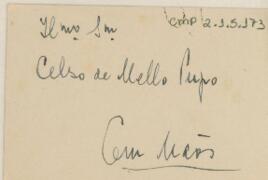 CMP 2.1.5.173
Ilmo Snr
Celso de Mello Pupo
Em Mãos